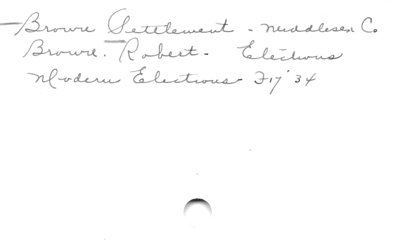 Browne Settlement - Middlesex Co.
Browne. Robert - Elections
Modern Elections F17'34